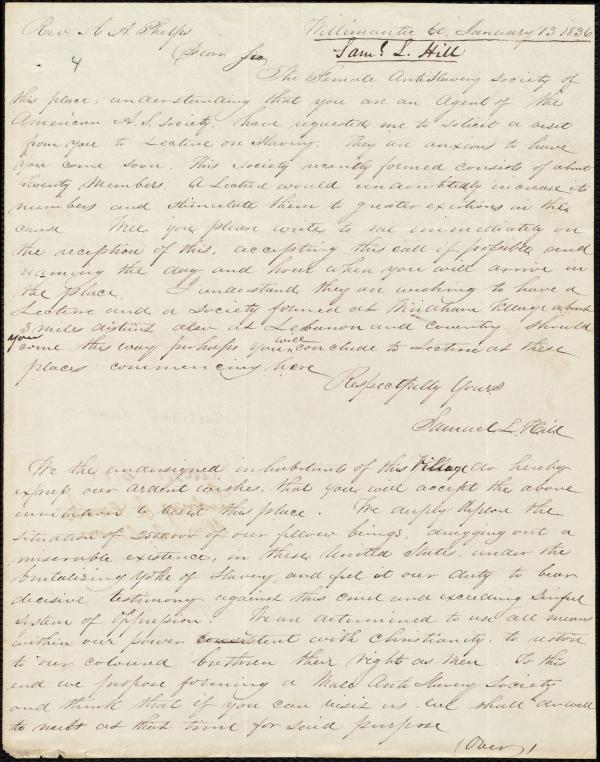 Rev. A. A. Phelps Willimantic Co. January 13 1836
4 Dear Sir Saml. L. Hill
The Female AntiSlavery society of
this place, understanding that you are an Agent of the
American A. S. Society, have requested me to solicit a visit
from you to Lecture on Slavery. They are anxious to have
you come soon. This Society recently formed consists of about
Twenty Members. A Lecture would undoubtedly increase its
numbers and stimulate them to greater exertions in this
cause Will you please write to me immediately on
the reception of this, accepting this call if possible and
naming the day and hour when you will arrive in
the place. I understand they are wishing to have a
Lecture and a Society formed at Windham Village about
3 miles distant also at Lebanon and Coventry. Should
you
come this way perhaps you will conclude to Lecture at these
places commencing here
Respectfully Yours
Samuel L. Hill
We the undersigned inhabitants of this Village do hereby
express our ardent wishes, that you will accept the above
invitation to visit this place. We deeply deplore the
situation of 2500000 of our fellow beings, dragging out a
miserable existence, in these United States, under the
brutalising Yoke of Slavery, and feel it our duty to bear
decisive testimony against this cruel and exceeding Sinful
System of Oppression. We are determined to use all means
within our power consistent with Christianity, to restore
to our coloured brethren their rights as Men. To this
end we propose forming a Male Anti Slavery Society
and think that if you can visit us, we shall do well
to meet at that time for said purpose
(Over)